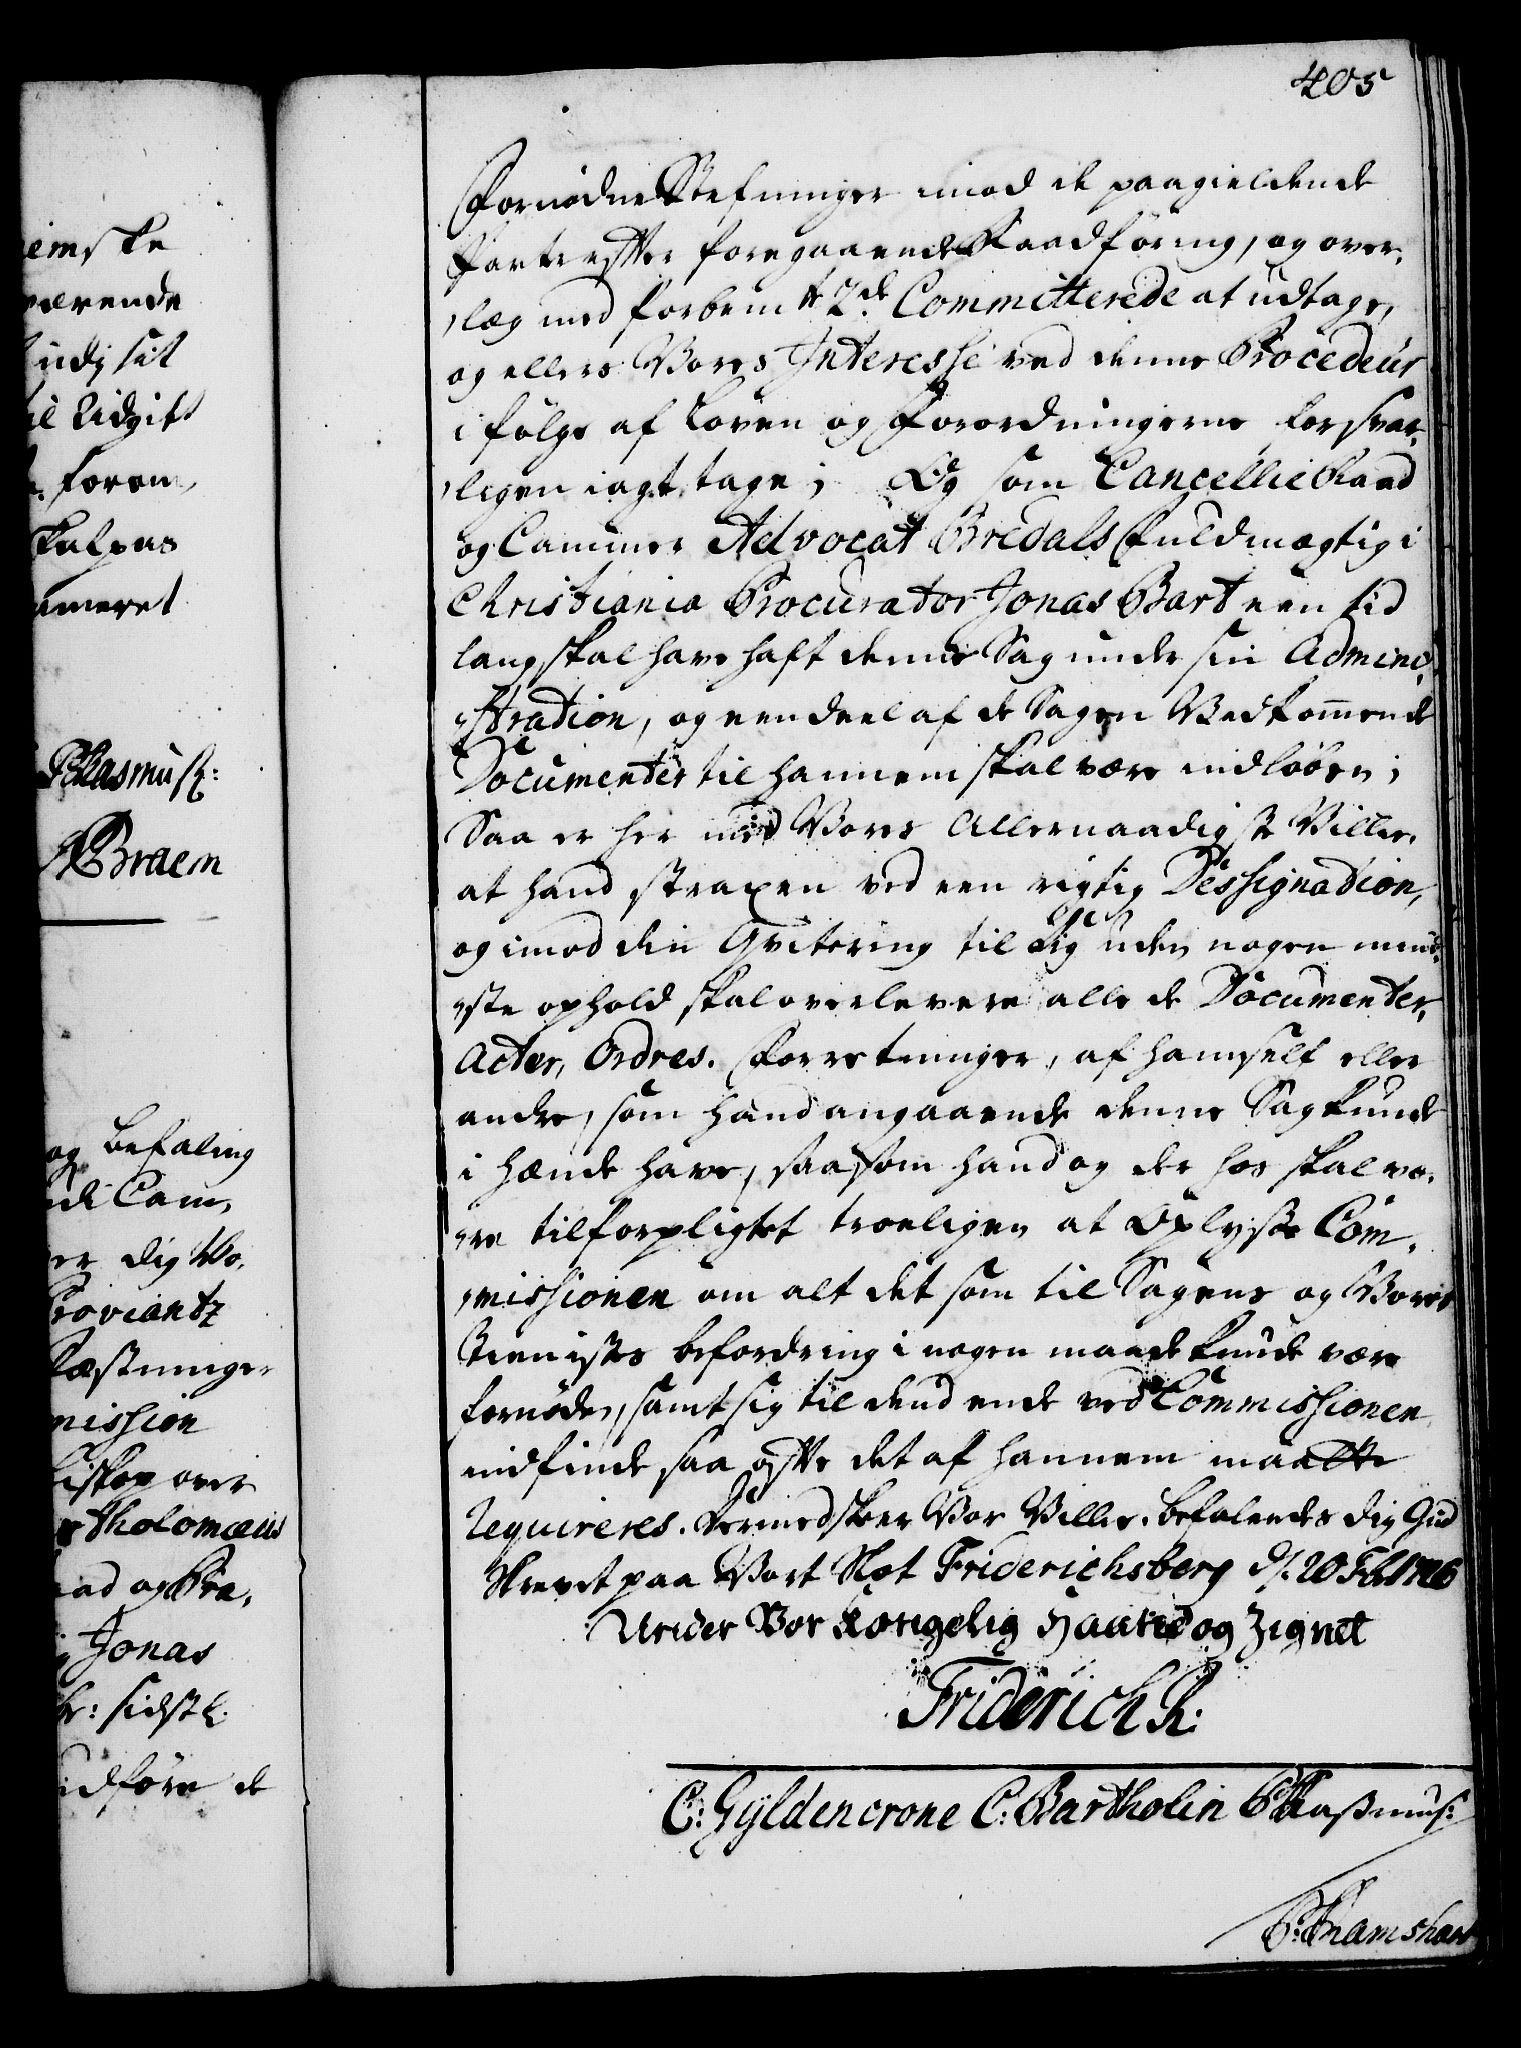 405
Fornødne Stefninger imod de paagieldende
Parter efter foregaaende Raadføring, og over,
,læg med forbem.te 2de Committerede at udtage,
og ellers Vores Interesse ved denne Procedeur
i følge af Loven og Forordningerne forsvar,
,ligen iagttage; Og som Cancellie Raad
og Cammer Advocat Bredals Fuldmægtig i
Christiania Procurator Jonas Bart een tid
lang skal have haft denne Sag under sin Admini,
,stration, og een deel af de Sagen Vedkommende
Documenter til hannem skal være indløben;
Saa er her med Vores Allernaadigste Villie,
at hand straxen ved een rigtig Dessignation,
og imod din Qvitering til dig uden nogen mind,
,ste ophold skal overlevere alle de Documenter,
Acter, Ordres, Forretninger, af hamself eller
andre, som hand angaaende denne Sag kunde
i hænde have, saasom hand og der hos skal væ,
,re tilforpligtet troeligen at Oplyse Com,
,missionen om alt det som til Sagens og Vores
Tienistes befordring i nogen maade kunde være
fornøden, samt sig til dend ende ved Commissionen
indfinde saa ofte det af hannem maatte
requireres. Dermed skeer Vor Villie, befalendes dig Gud
Skrevet paa Vort Slot Friderichsberg d. 20 Feb. 1726
Under Vor Kongelig Haand og Zignet
Friderich R.
C: Gyldencrone C: Bartholin P Rasmus:
P: Ramshar
emske
værende
udj sit
Udgift
foren,
Rasmus:
Braem
og befaling
udi Cam,
er dig Vo,
Proviantz
Fæstninger
mission
Biskop over
rtholomæus
aad og Pro,
Jonas
sidst
udføre de